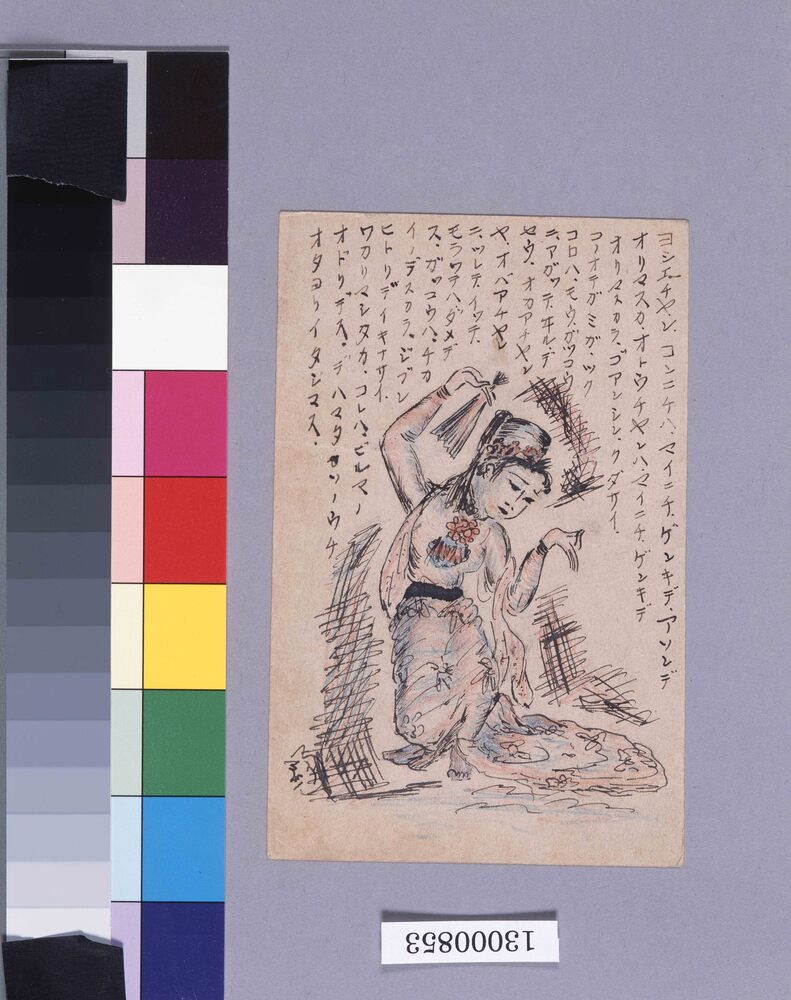 ヨシエチヤン、コンニチハ、マイニチ、ゲンキデ、アソンデ
オリマスカ、オトウチヤンハマイニチ、ゲンキデ
オリマスカラ、ゴアンシン、クダサイ.
コノオテガミガ、ツク
コロハ、モウ、ガツコウ
ニ、アガツテ、ヰル、デ
セウ、オカアチヤン
ヤ、オバアチヤン
ニ、ツレテ、イツテ、
モラツテハダメデ
ス、ガツコウハ、チカ
イノデスカラ、ジブン
ヒトリデイキナサイ.
ワカリマシタカ、コレハ、ビルマノ
オドリデス、デハマタ ソノウチ
オタヨリイタシマス.
13000853